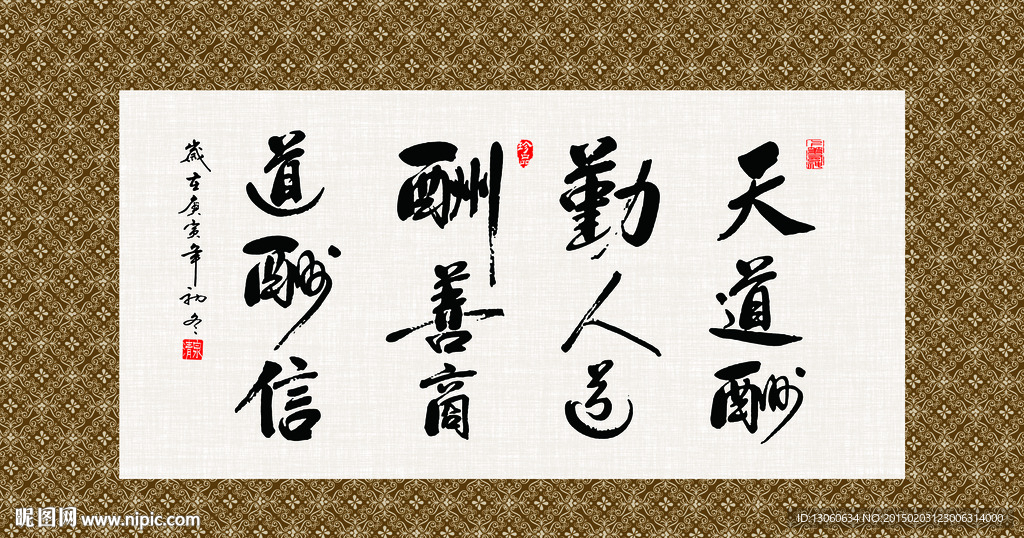 天道酬
勤人道
酬善商
道酬信
歲在庚寅年初冬
珍品
昵图网 www.nipic.com
ID:13060634 NO:20150203123006314000